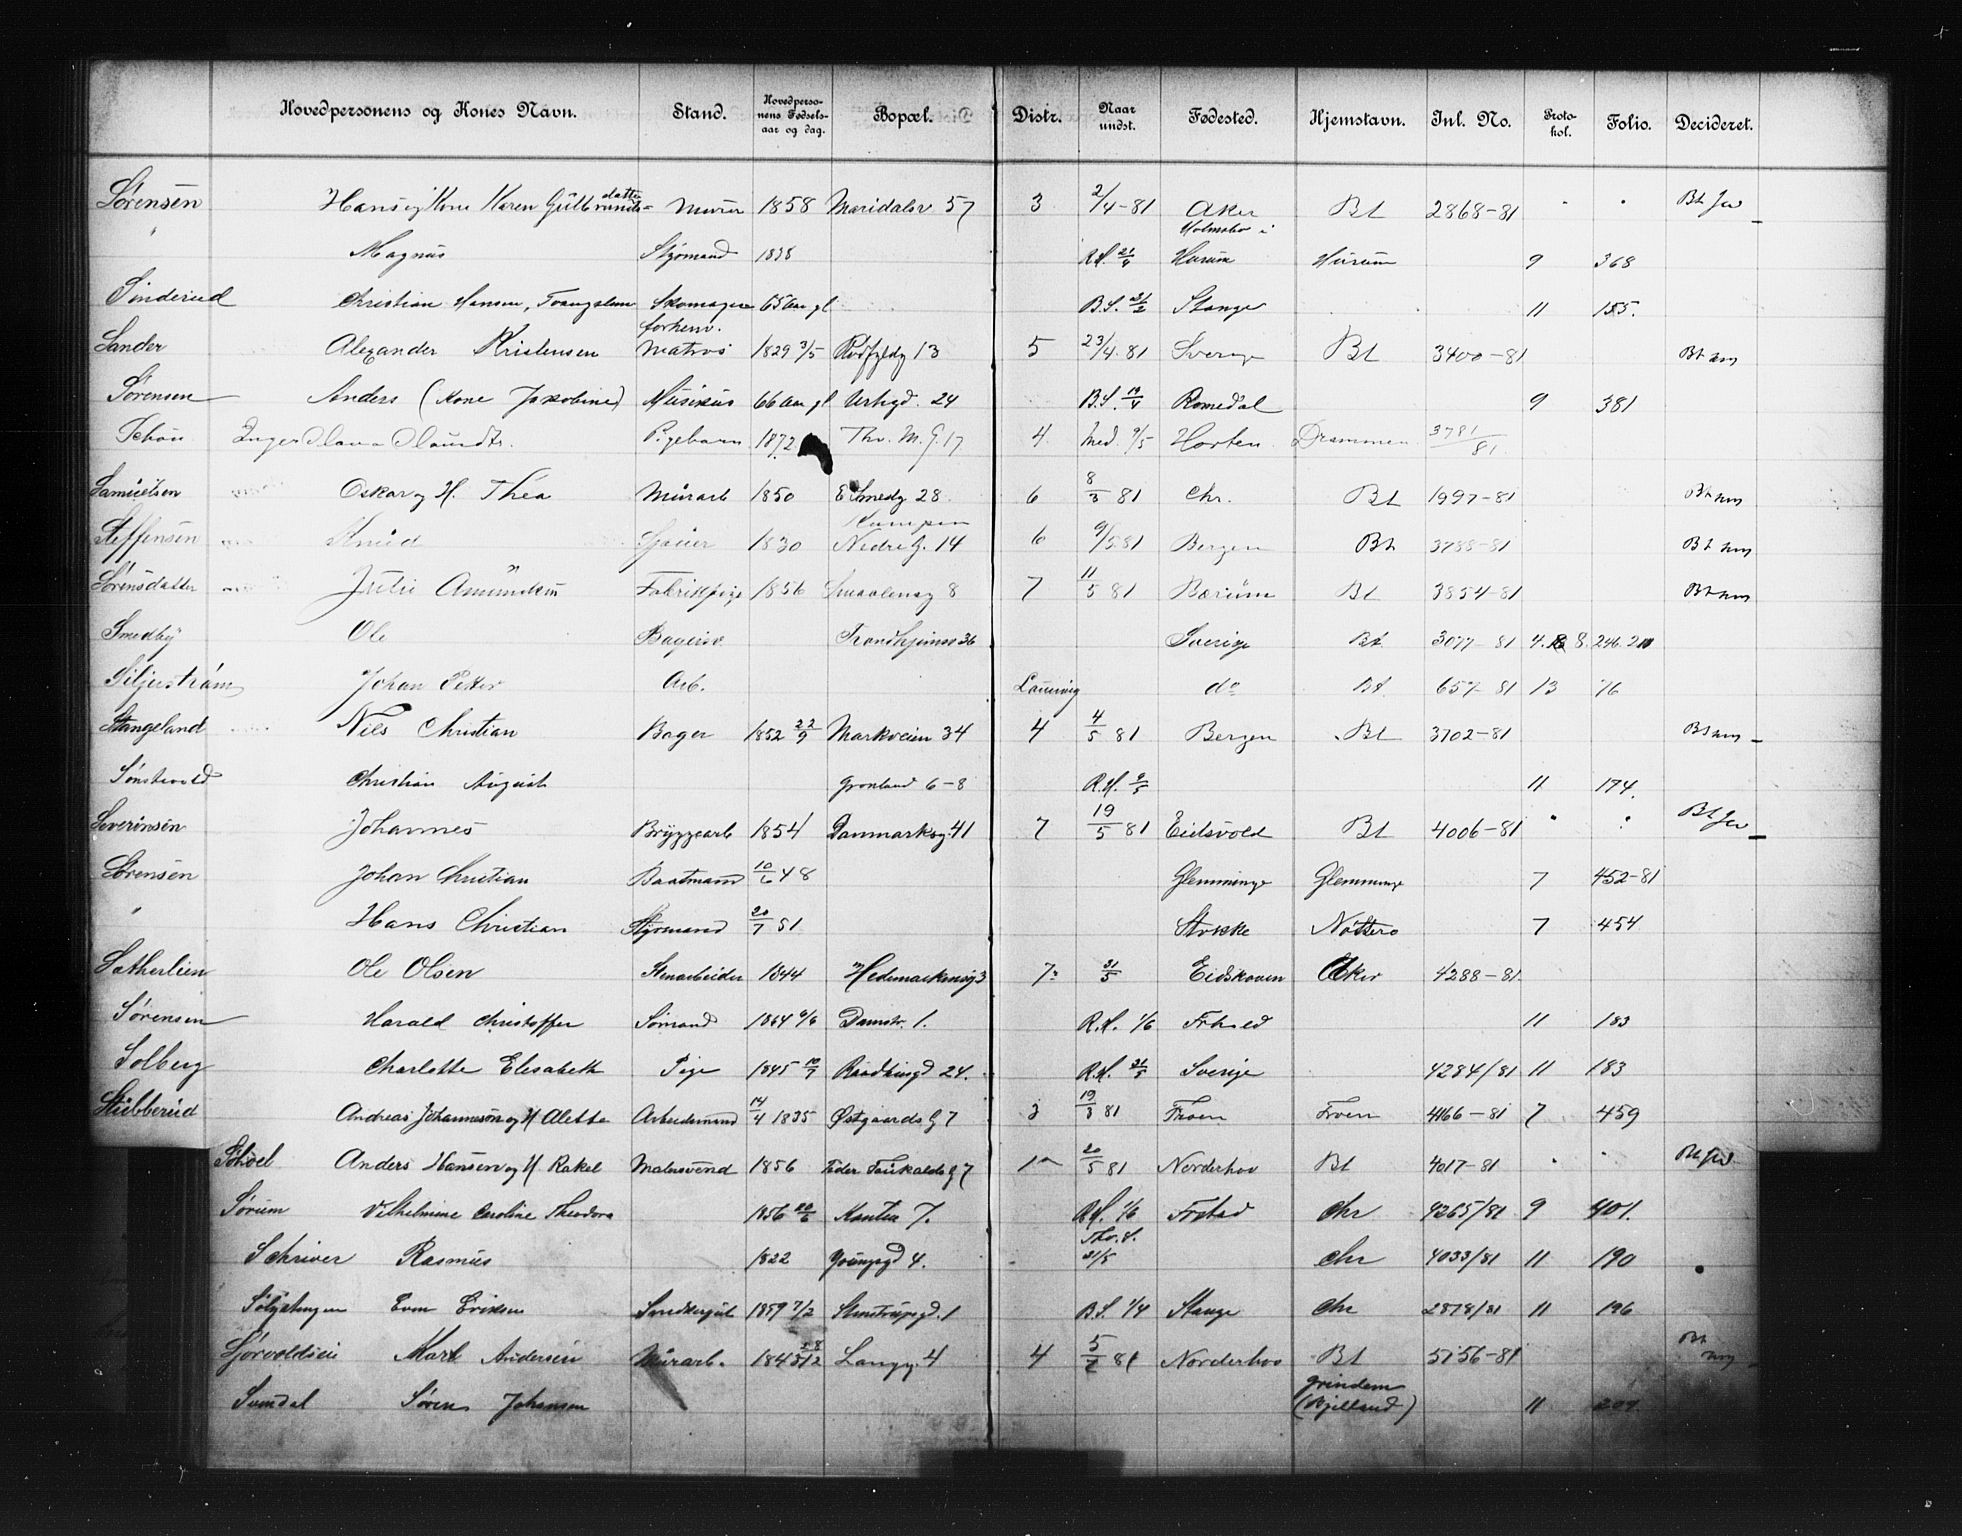 Hovedpersonens og Kones Navn. Stand. Hovedpersonens Fødselsaar og dag. Bopæl. Distr. Naar undst. Fødested. Hjemstavn. Inl. No. Protokol. Folio. Decideret.
Sørensen Hans og Kone Karen Gulbrandsdatter Murer 1858 Maridalsv 57 3 2/4-81 Aker Bt 2868-81 " "
" Magnus Styrmand 1838 R.H. 21/4 Holmsbo i Hurum Hurum 9 368
Sønderud Christian Hansen, Tvangslem Skomager 65 Aar gl B.S. 21/2 Stange 11 155.
Sander Alexander Kristensen forhenv. Matros 1829 3/5 Rødfyldg 13 5 23/4.81 Sverige Bt 3400-81 Bt
Sørensen Anders (Kone Jakobine) Musikus 66 Aar gl Urtegd. 24 B.S. 19/4 Romedal 9 381
Schøu Inger Olava Olaundtr. Pigebarn 1872 Thv. M. G. 17 4 Med. 9/5 Horten Drammen 3781/81
Samuelsen Oskar og H. Thea Murarb 1850 E Smedg 28 6 8/3 81 Chr. Bt 1997-81 Bt
Steffensen Knud 1830 Kampen Nedre G. 14 6 9/5 81 Bergen Bt 3788-81 Bt
Sørensdatter Julie Amundsen Fabrikpige 1856 Smaaleneg 8 7 11/5 81 Bærum Bt 3854-81 Bt
Smedby Ole Bagersv. Trondhjemsv 36 Sverige Bt 3077-81 4. 8. 246.
Siljestrøm Johan Petter Arb. Laurvig do Bt. 657-81 13 76
Stangeland Nils Christian Bager 1852 22/9 Markveien 34 4 4/5 81 Bergen Bt 3702-81 Bt
Sønstevold Christian August Grønland 6-8 R.H. 9/5 11 174.
Severinsen Johannes Bryggearb 1854 Danmarksg. 41 7 19/5 81 Eidsvold Bt 4006-81 " " Bt
Sørensen Johan Christian Baatmand 10/6 48 Glemminge Glemminge 7 452-81
" Hans Christian Styrmand 20/7 51 Stokke Nøtterø 7 454
Sætherlien Ole Olsen Stenarbeider 1844 Hedemarkensg 3 7 31/5 Eidskoven Aker 4288-81.
Sørensen Harald Christoffer Sømand 1864 6/6 Damstr. 1. R.H. 1/6 Frhsted 11 183
Solberg Charlotte Elisabeth Pige 1845 10/7 Raadhusgd 24. R.H. 31/5 Sverige 4284/81 11 183
Stubberud Andreas Johannesen og H Alette Arbeidsmand 14/4 1835 Østgaards G 7 3 19/3 81 Froen Froen 4166-81 7 459
Schøel Anders Hansen og H Rakel Malersvend 1856 Peder Faukalds G 7 1 20/5 81 Norderhov Bt 4017-81 " " Bt
Sørum Vilhelmine Caroline Theodora 1856 20/6 R.H. 1/6 Frstad Chr 4265/81 9 401.
Schriver Rasmus 1822 Youngsgd 4. Thv. S. 31/5 Chr 4033/81 11 190
Even Eriksen Snedkergut 1859 7/2 Stenstrupsgd. 1 B.S. 1/4 Stange Chr 2878/81 11 196
Sjørvoldsen Mart Andersen Murarb. 1843 28/12 Langg. 4 4 5/7 81 Norderhov Bt 5756-81 Bt
Sundal Søren Johansen Grindem (Bjelland) 11 204.